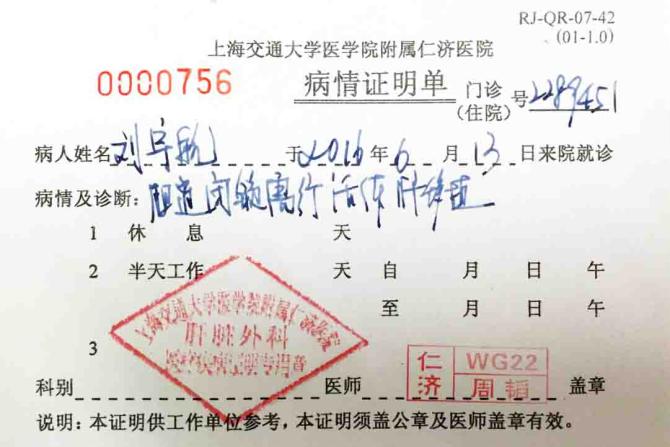 RJ-QR-07-42
(01-1.0)
上海交通大学医学院附属仁济医院
0000756
病情证明单
门诊
(住院)
号2289451
病人姓名 刘宇航 于2016年6月13日来院就诊
病情及诊断：胆道闭锁需行活体肝移植
1 休 息 天
2 半天工作 天 自 月 日 午
至 月 日 午
3
上海交通大学医学院附属仁济医院
肝脏外科
疾病证明专用章
仁济 WG22
周韬
科别 医师 盖章
说明：本证明供工作单位参考，本证明须盖公章及医师盖章有效。